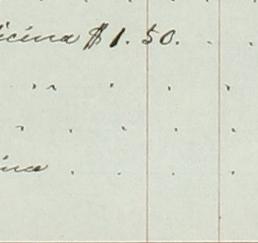 icina $1.50.
ina